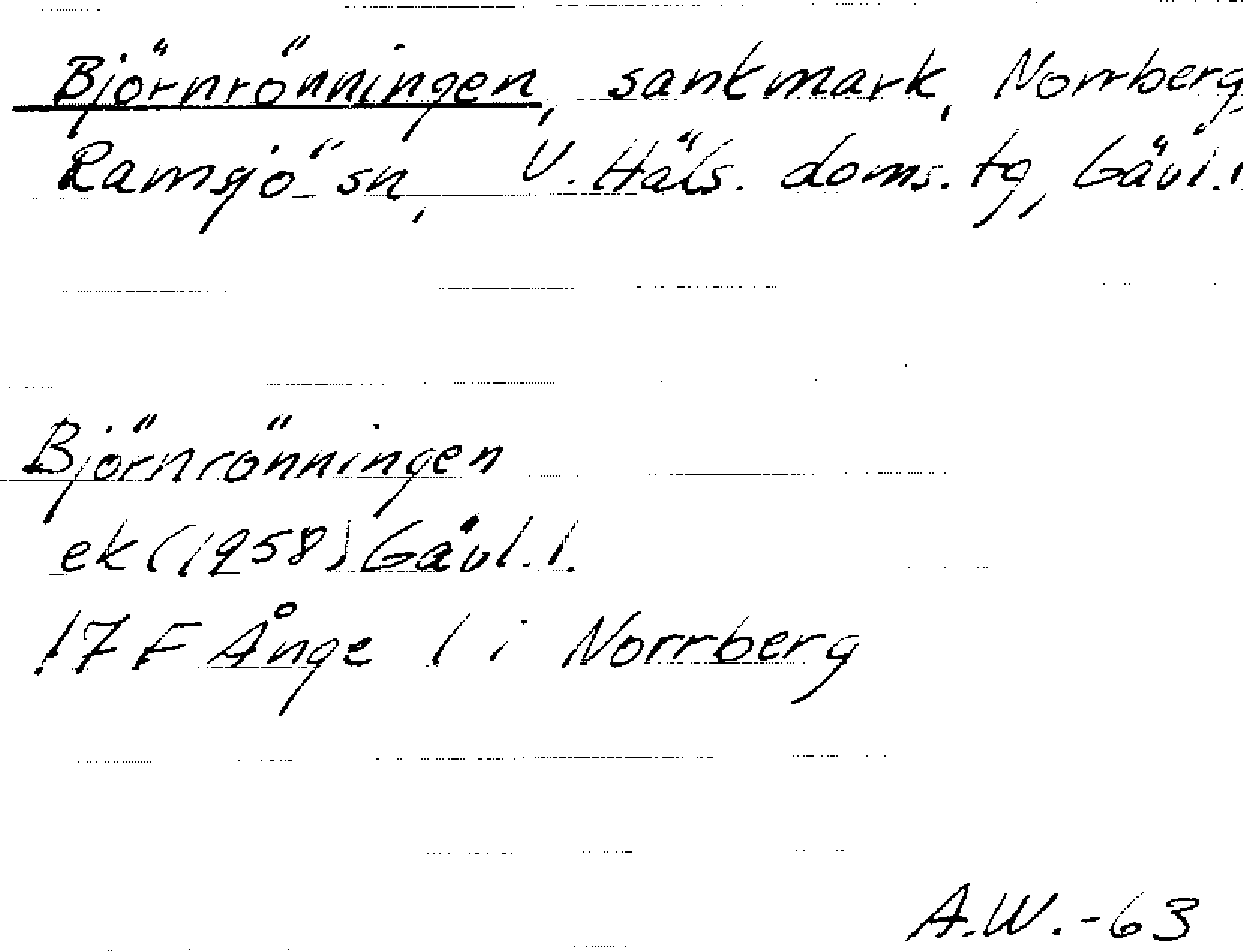 Björnrönningen, sankmark, Norrberg,
Ramsjö sn, V. Häls. doms. tg, Gävl. l.
Björnrönningen
ek (1958) Gävl. l.
17 F Ånge 1 i Norrberg
A.W. -63